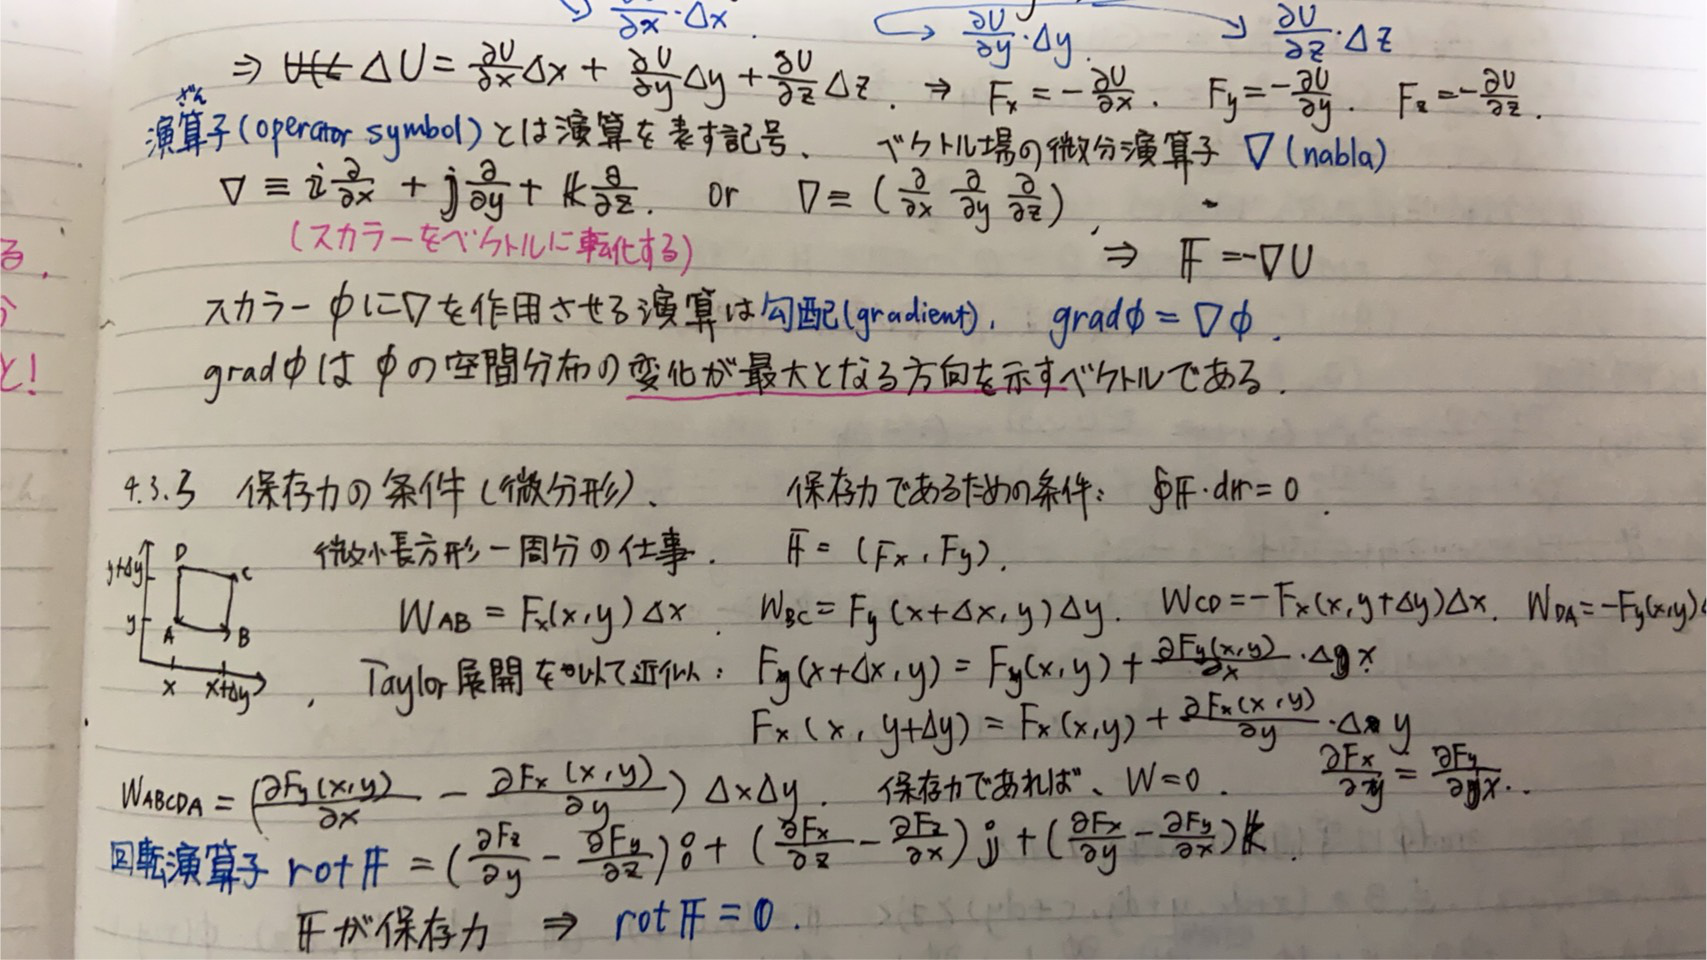 ∂U/∂x・Δx. ∂U/∂y・Δy. ∂U/∂z・Δz
⇒ ΔU = ∂U/∂x Δx + ∂U/∂y Δy + ∂U/∂z Δz. ⇒ Fx = -∂U/∂x. Fy = -∂U/∂y. Fz = -∂U/∂z.
ざん
演算子(operator symbol)とは演算を表す記号、 ベクトル場の微分演算子 ∇(nabla)
∇ ≡ i ∂/∂x + j ∂/∂y + k ∂/∂z. or ∇ ≡ (∂/∂x ∂/∂y ∂/∂z),
(スカラーをベクトルに転化する) ⇒ F = -∇U
スカラーφに∇を作用させる演算は勾配(gradient). gradφ = ∇φ.
gradφはφの空間分布の変化が最大となる方向を示すベクトルである.
4.3.3 保存力の条件(微分形)、 保存力であるための条件: ∮F・dr = 0.
微小長方形一周分の仕事. F = (Fx, Fy).
y+Δy D C
y A B
x x+Δy
WAB = Fx(x,y)Δx. WBC = Fy(x+Δx,y)Δy. WCD = -Fx(x,y+Δy)Δx. WDA = -Fy(x,y)
Taylor展開を用いて近似: Fy(x+Δx,y) = Fy(x,y) + ∂Fy(x,y)/∂x・Δx
Fx(x,y+Δy) = Fx(x,y) + ∂Fx(x,y)/∂y・Δy
WABCDA = (∂Fy(x,y)/∂x - ∂Fx(x,y)/∂y) ΔxΔy. 保存力であれば、W=0. ∂Fx/∂y = ∂Fy/∂x..
回転演算子 rot F = (∂Fz/∂y - ∂Fy/∂z) i + (∂Fx/∂z - ∂Fz/∂x) j + (∂Fx/∂y - ∂Fy/∂x) k.
Fが保存力 ⇒ rot F = 0.
る.
と!